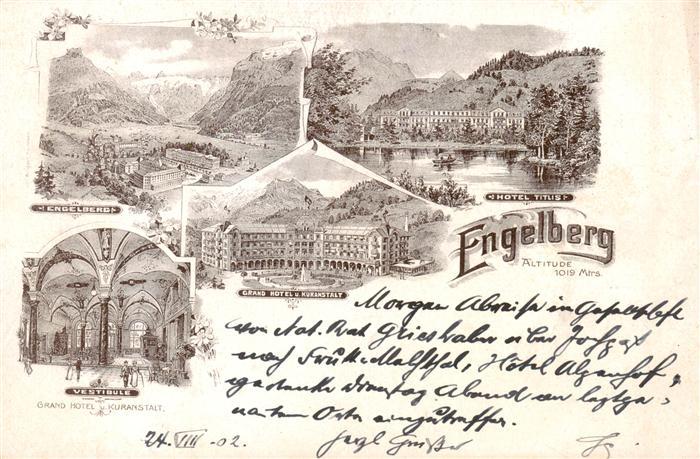 ENGELBERG
HOTEL TITLIS
Engelberg
ALTITUDE
1019 Mtrs.
GRAND HOTEL u. KURANSTALT
VESTIBULE
GRAND HOTEL u. KURANSTALT.
Morgen Abreise in Gesellschaft
von Nat. Rat Grieshaber über Jochpass
nach Frutt-Melchthal, Hotel Alpenhof,
gedenke Abend an letztge-
nanntem Orte einzutreffen.
24. VIII -02. Herzl